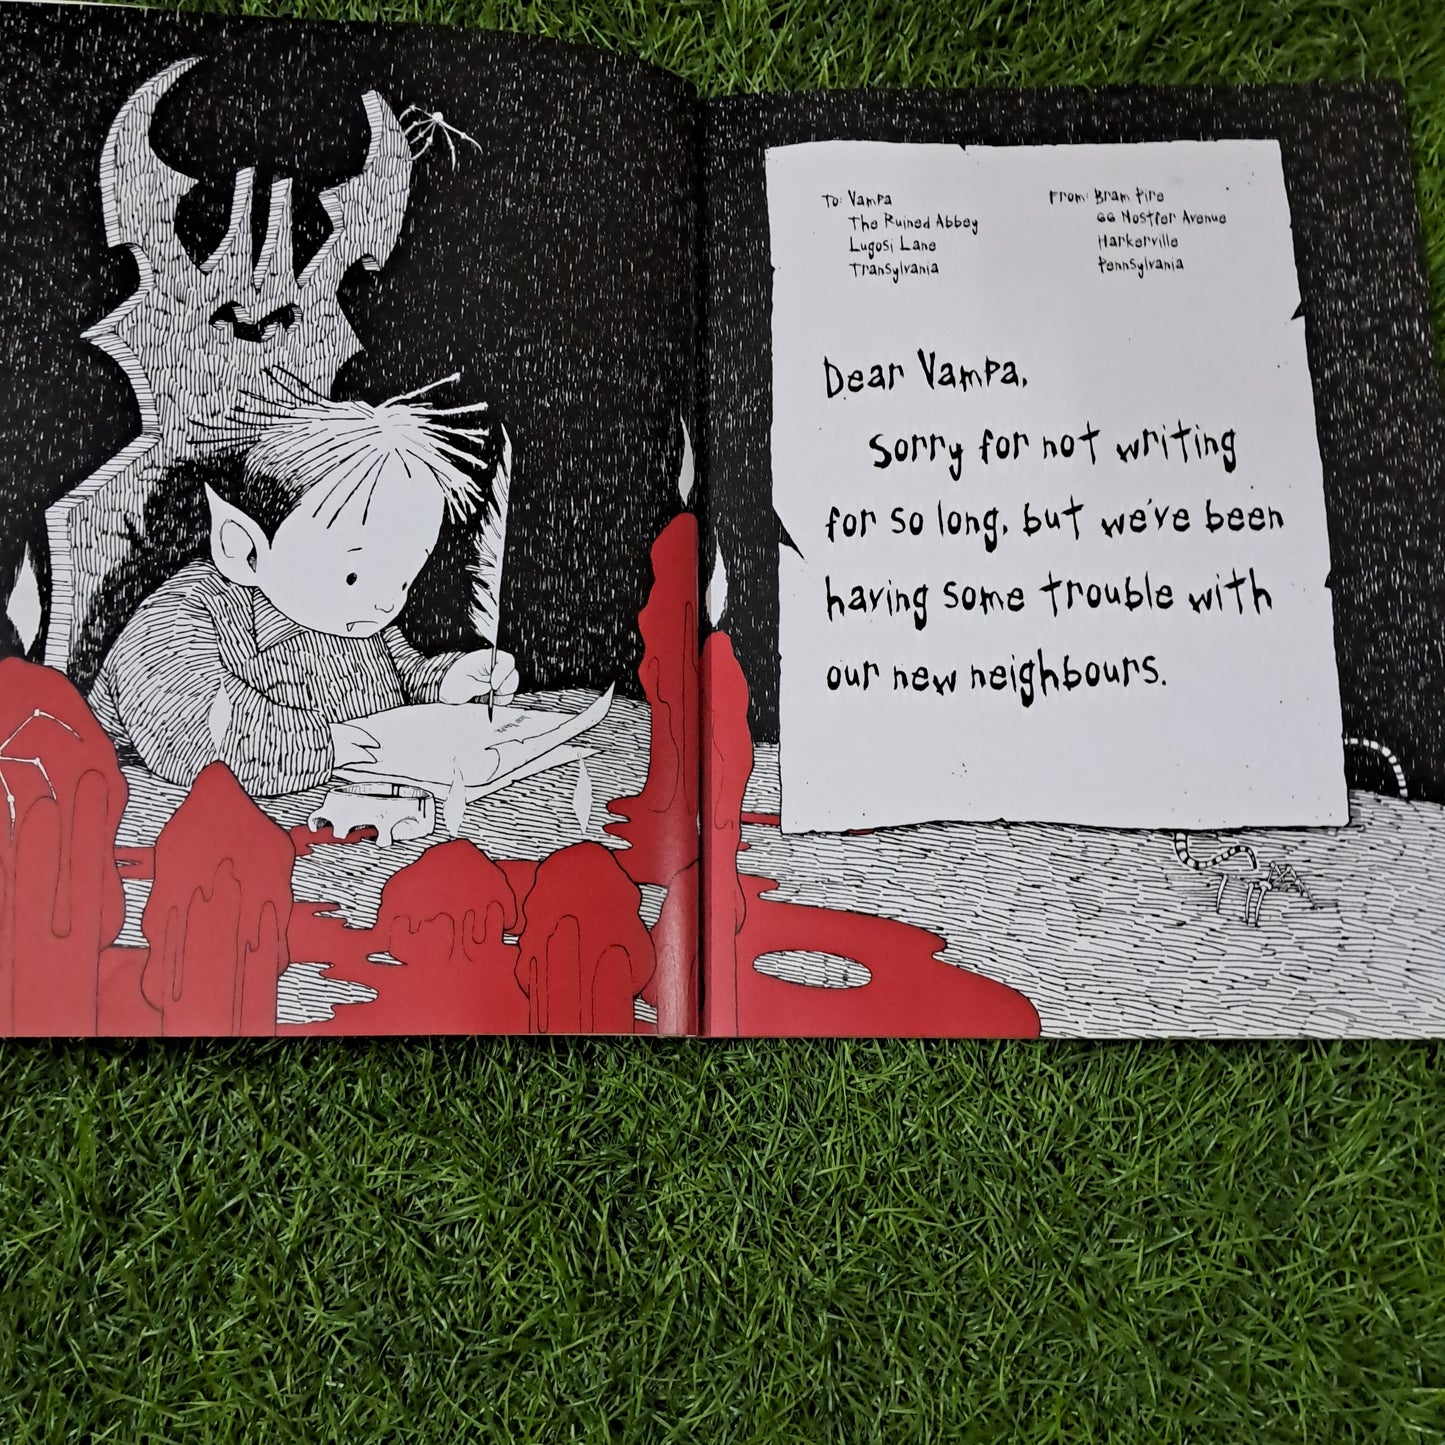 To: Vampa
The Ruined Abbey
Lugosi Lane
Transylvania
From: Bram Pire
66 Nostfer Avenue
Harkerville
Pennsylvania
Dear Vampa,
Sorry for not writing
for so long, but we've been
having some trouble with
our new neighbours.